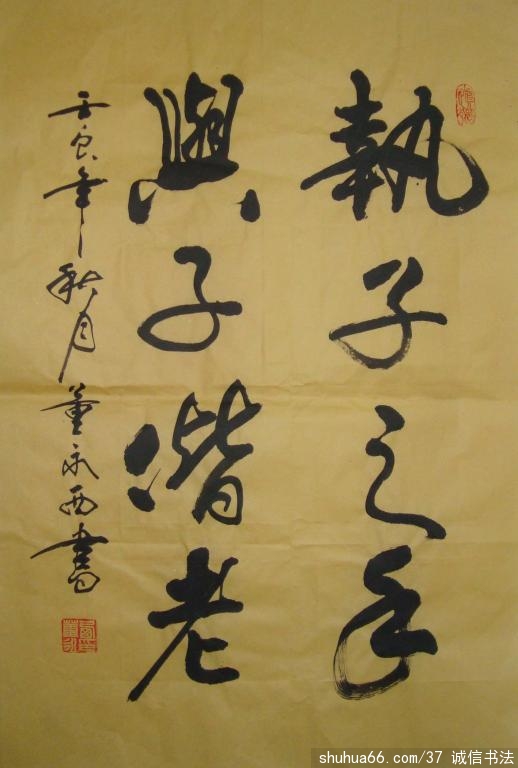 執子之手
與子偕老
壬辰年秋月董永西書
shuhua66.com/37 诚信书法